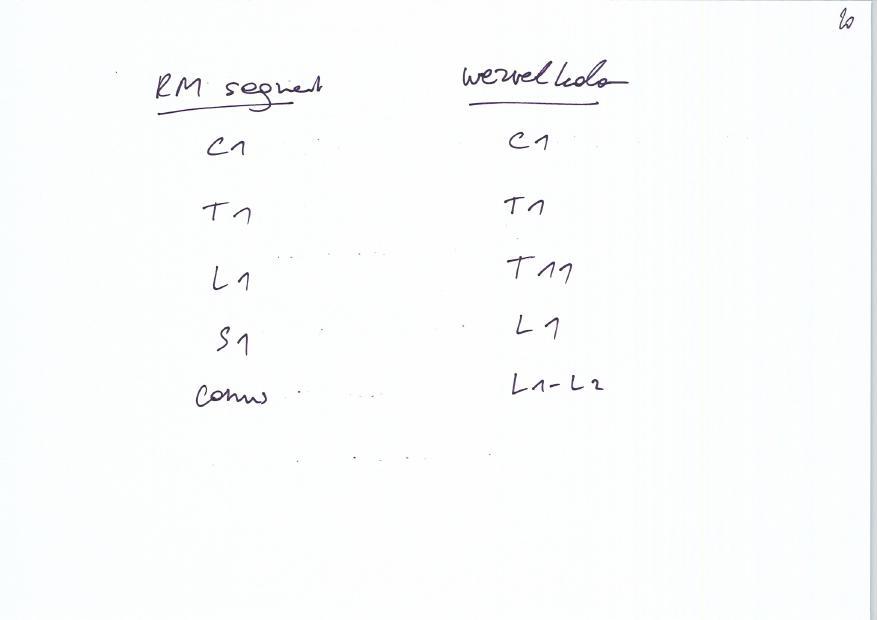 20
RM segment wervelkolo
C1 C1
T1 T1
L1 T11
S1 L1
Conus L1-L2